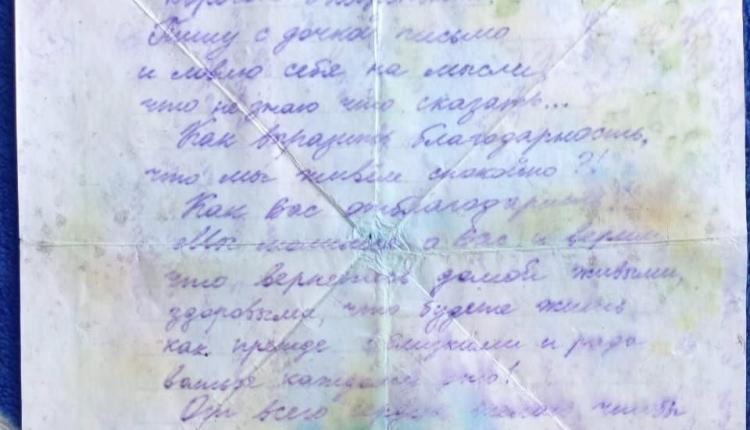 Пишу с дочкой письмо
и ловлю себя на мысли,
что не знаю что сказать...
Как выразить благодарность,
что мы живём спокойно?!
Как вас отблагодарить
Мы за вас и верим
что вернетесь домой живыми,
здоровыми, что будете жить
как прежде с близкими и рады
каждому дню!
От всего сердца чтобы